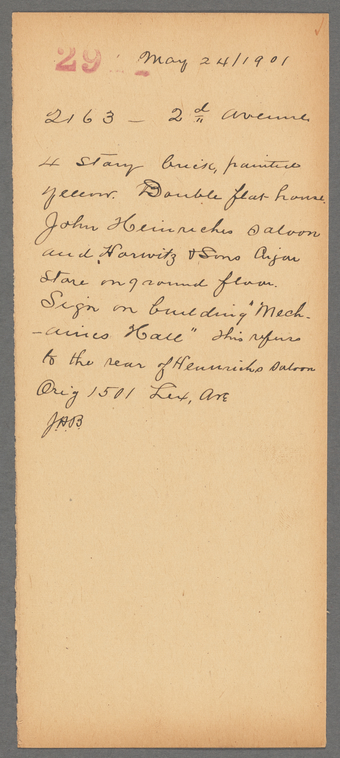 29
May 24/1901
2163 - 2d Avenue
4 Story brick, painted
yellow. Double flat house.
John Heinrichs Saloon
and Horwitz & Sons Cigar
Store on ground floor.
Sign on building "Mech-
-anics Hall" this refers
to the rear of Heinrichs Saloon
Orig 1501 Lex, Ave
J.A.B.